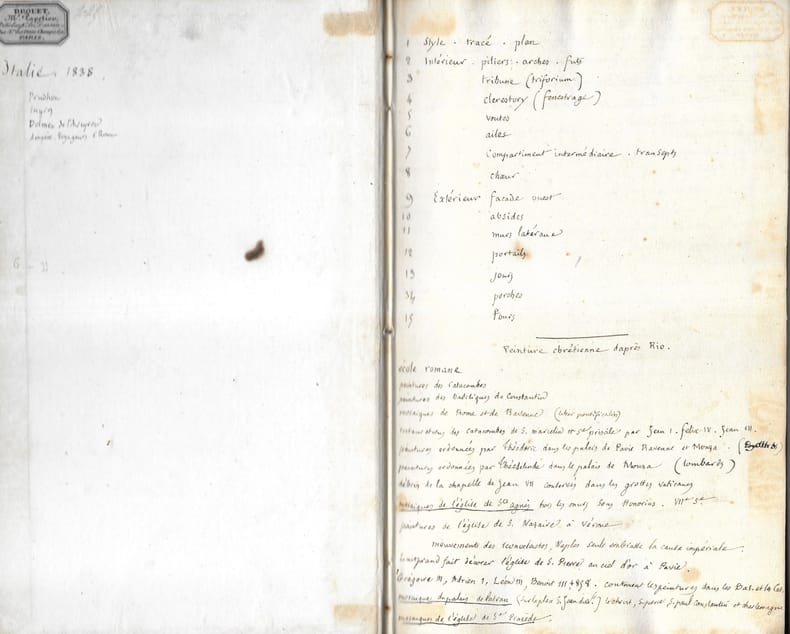 DROUET,
Md. Papetier,
PARIS.
Italie. 1838
Prudhon
Ingres
1 Style . tracé . plan
2 Intérieur . piliers . arches . futs
3 tribune (triforium)
4 clerestory (fenestrage)
5 voutes
6 ailes
7 Compartiment intermédiaire . transepts
8 chœur
9 Extérieur facade ouest
10 absides
11 murs latéraux
12 portails
13 jours
14 porches
15 Tours
Peinture chrétienne d'après Rio.
école romane
peintures des Catacombes
peintures des Basiliques de Constantin
mosaiques de Rome et de Ravenne (liber pontificalis)
restaurations des catacombes de S. marcelin et Ste priscile par Jean I. felix IV. Jean III.
peintures ordonnées par théodoric dans les palais de Pavie Ravenne et Monza.
peintures ordonnées par théodelinde dans le palais de Monza (lombards)
débris de la chapelle de Jean VII conservés dans les grottes vaticanes
mosaiques de l'église de Ste agnès hors les murs sous Honorius. VIIe Se
peintures de l'église de S. Nazaire à Vérone
mouvements des iconoclastes, Naples seule embrasse la cause impériale.
fait décorer l'église de S. Pierre au ciel d'or à Pavie.
Grégoire III, Adrien 1, Léon III, Benoit III +858. continuent les peintures dans les Bas. et les Cat.
mosaiques du palais de Latran S. pierre S. paul constantin et charlemagne
mosaiques de l'église de Ste Praxède